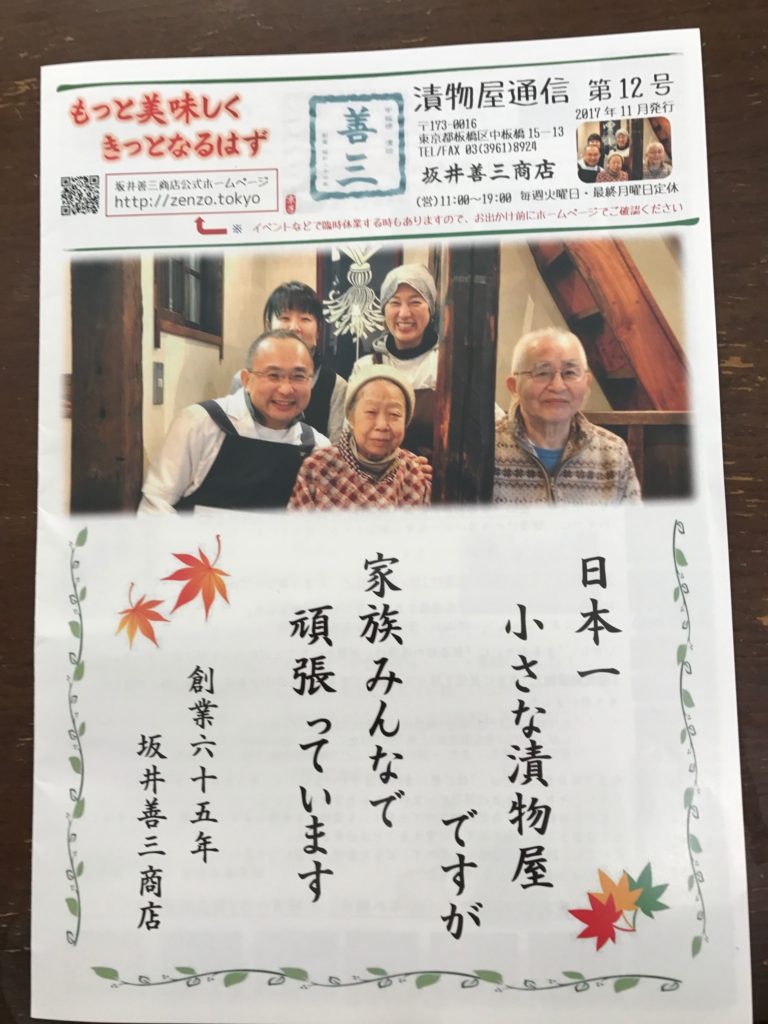 もっと美味しく
きっとなるはず
坂井善三商店公式ホームページ
http://zenzo.tokyo
善三
漬物屋通信 第12号
2017年11月発行
〒173-0016
東京都板橋区中板橋15−13
TEL/FAX 03(3961)8924
坂井善三商店
(営)11:00〜19:00 毎週火曜日・最終月曜日定休
※ イベントなどで臨時休業する時もありますので、お出かけ前にホームページでご確認ください
日本一
小さな漬物屋
ですが
家族みんなで
頑張っています
創業六十五年
坂井善三商店